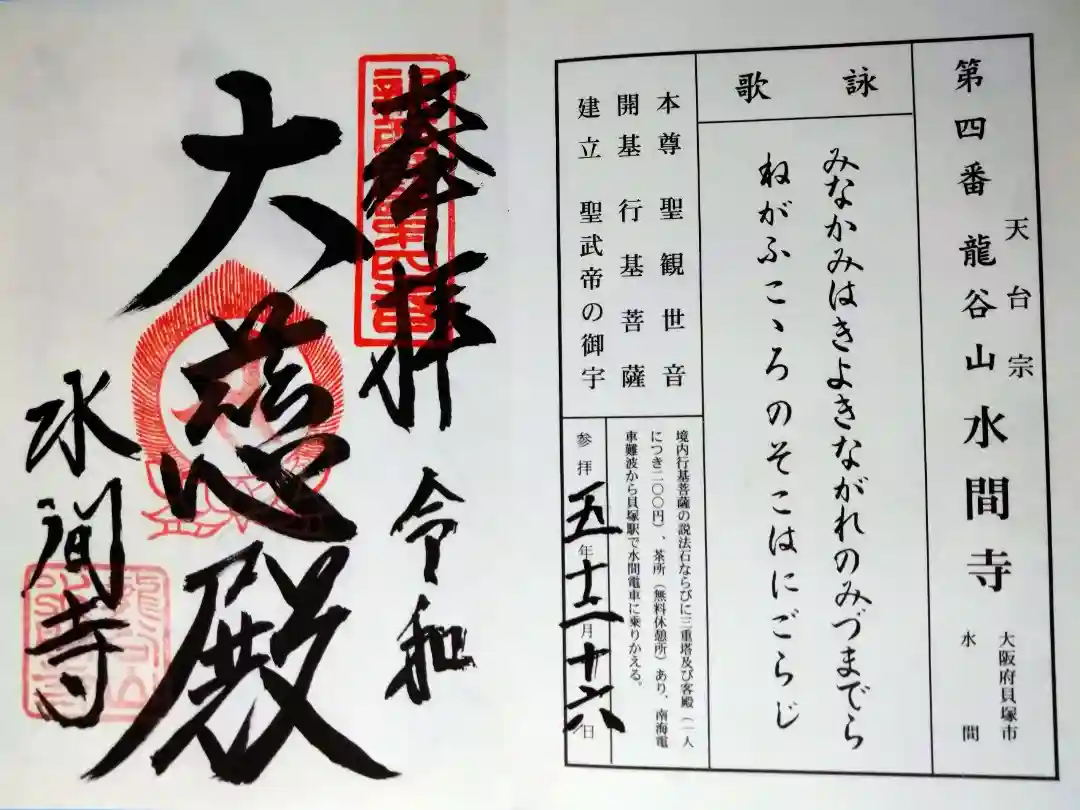 天台宗
第四番 龍谷山 水間寺
大阪府貝塚市
水間
詠歌
みなかみはきよきながれのみづまでら
ねがふこゝろのそこはにごらじ
本尊 聖観世音
開基 行基菩薩
建立 聖武帝の御宇
境内行基菩薩の説法石ならびに三重塔及び客殿（一人
につき二〇〇円）、茶所（無料休憩所）あり、南海電
車難波から貝塚駅で水間電車に乗りかえる。
参拝 五年十二月十六日
奉拝 令和
大慈殿
水間寺